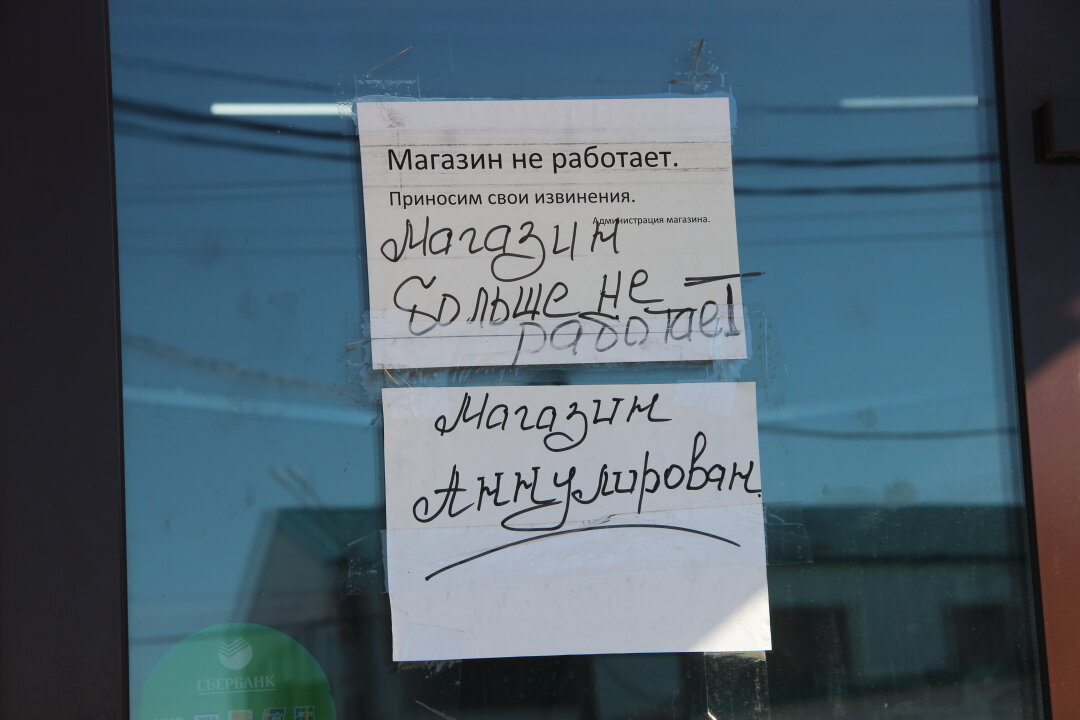 Магазин не работает.
Приносим свои извинения.
Администрация магазина.
Магазин
больше не
работает
Магазин
Аннулирован.
СБЕРБАНК